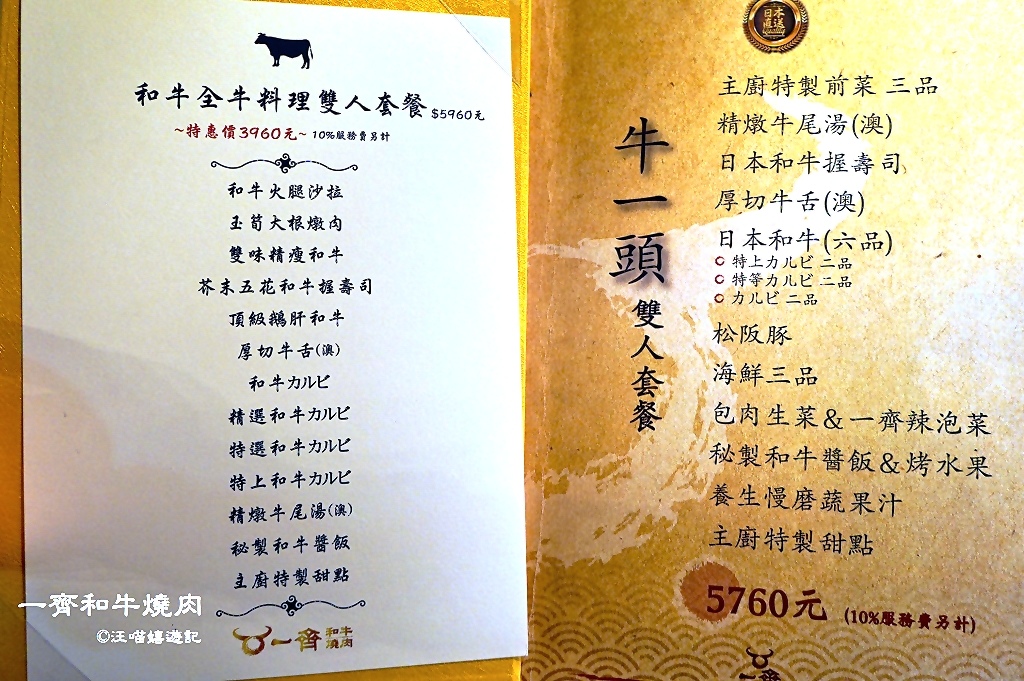 和牛全牛料理雙人套餐 $5960元
~特惠價3960元~ 10%服務費另計
和牛火腿沙拉
玉筍大根燉肉
雙味精瘦和牛
芥末五花和牛握壽司
頂級鵝肝和牛
厚切牛舌(澳)
和牛カルビ
精選和牛カルビ
特選和牛カルビ
特上和牛カルビ
精燉牛尾湯(澳)
秘製和牛醬飯
主廚特製甜點
一齊 和牛燒肉
一齊和牛燒肉
©汪喵嬉遊記
日本直送
牛一頭 雙人套餐
主廚特製前菜 三品
精燉牛尾湯(澳)
日本和牛握壽司
厚切牛舌(澳)
日本和牛(六品)
特上カルビ 二品
特等カルビ 二品
カルビ 二品
松阪豚
海鮮三品
包肉生菜&一齊辣泡菜
秘製和牛醬飯&烤水果
養生慢磨蔬果汁
主廚特製甜點
5760元 (10%服務費另計)
一齊